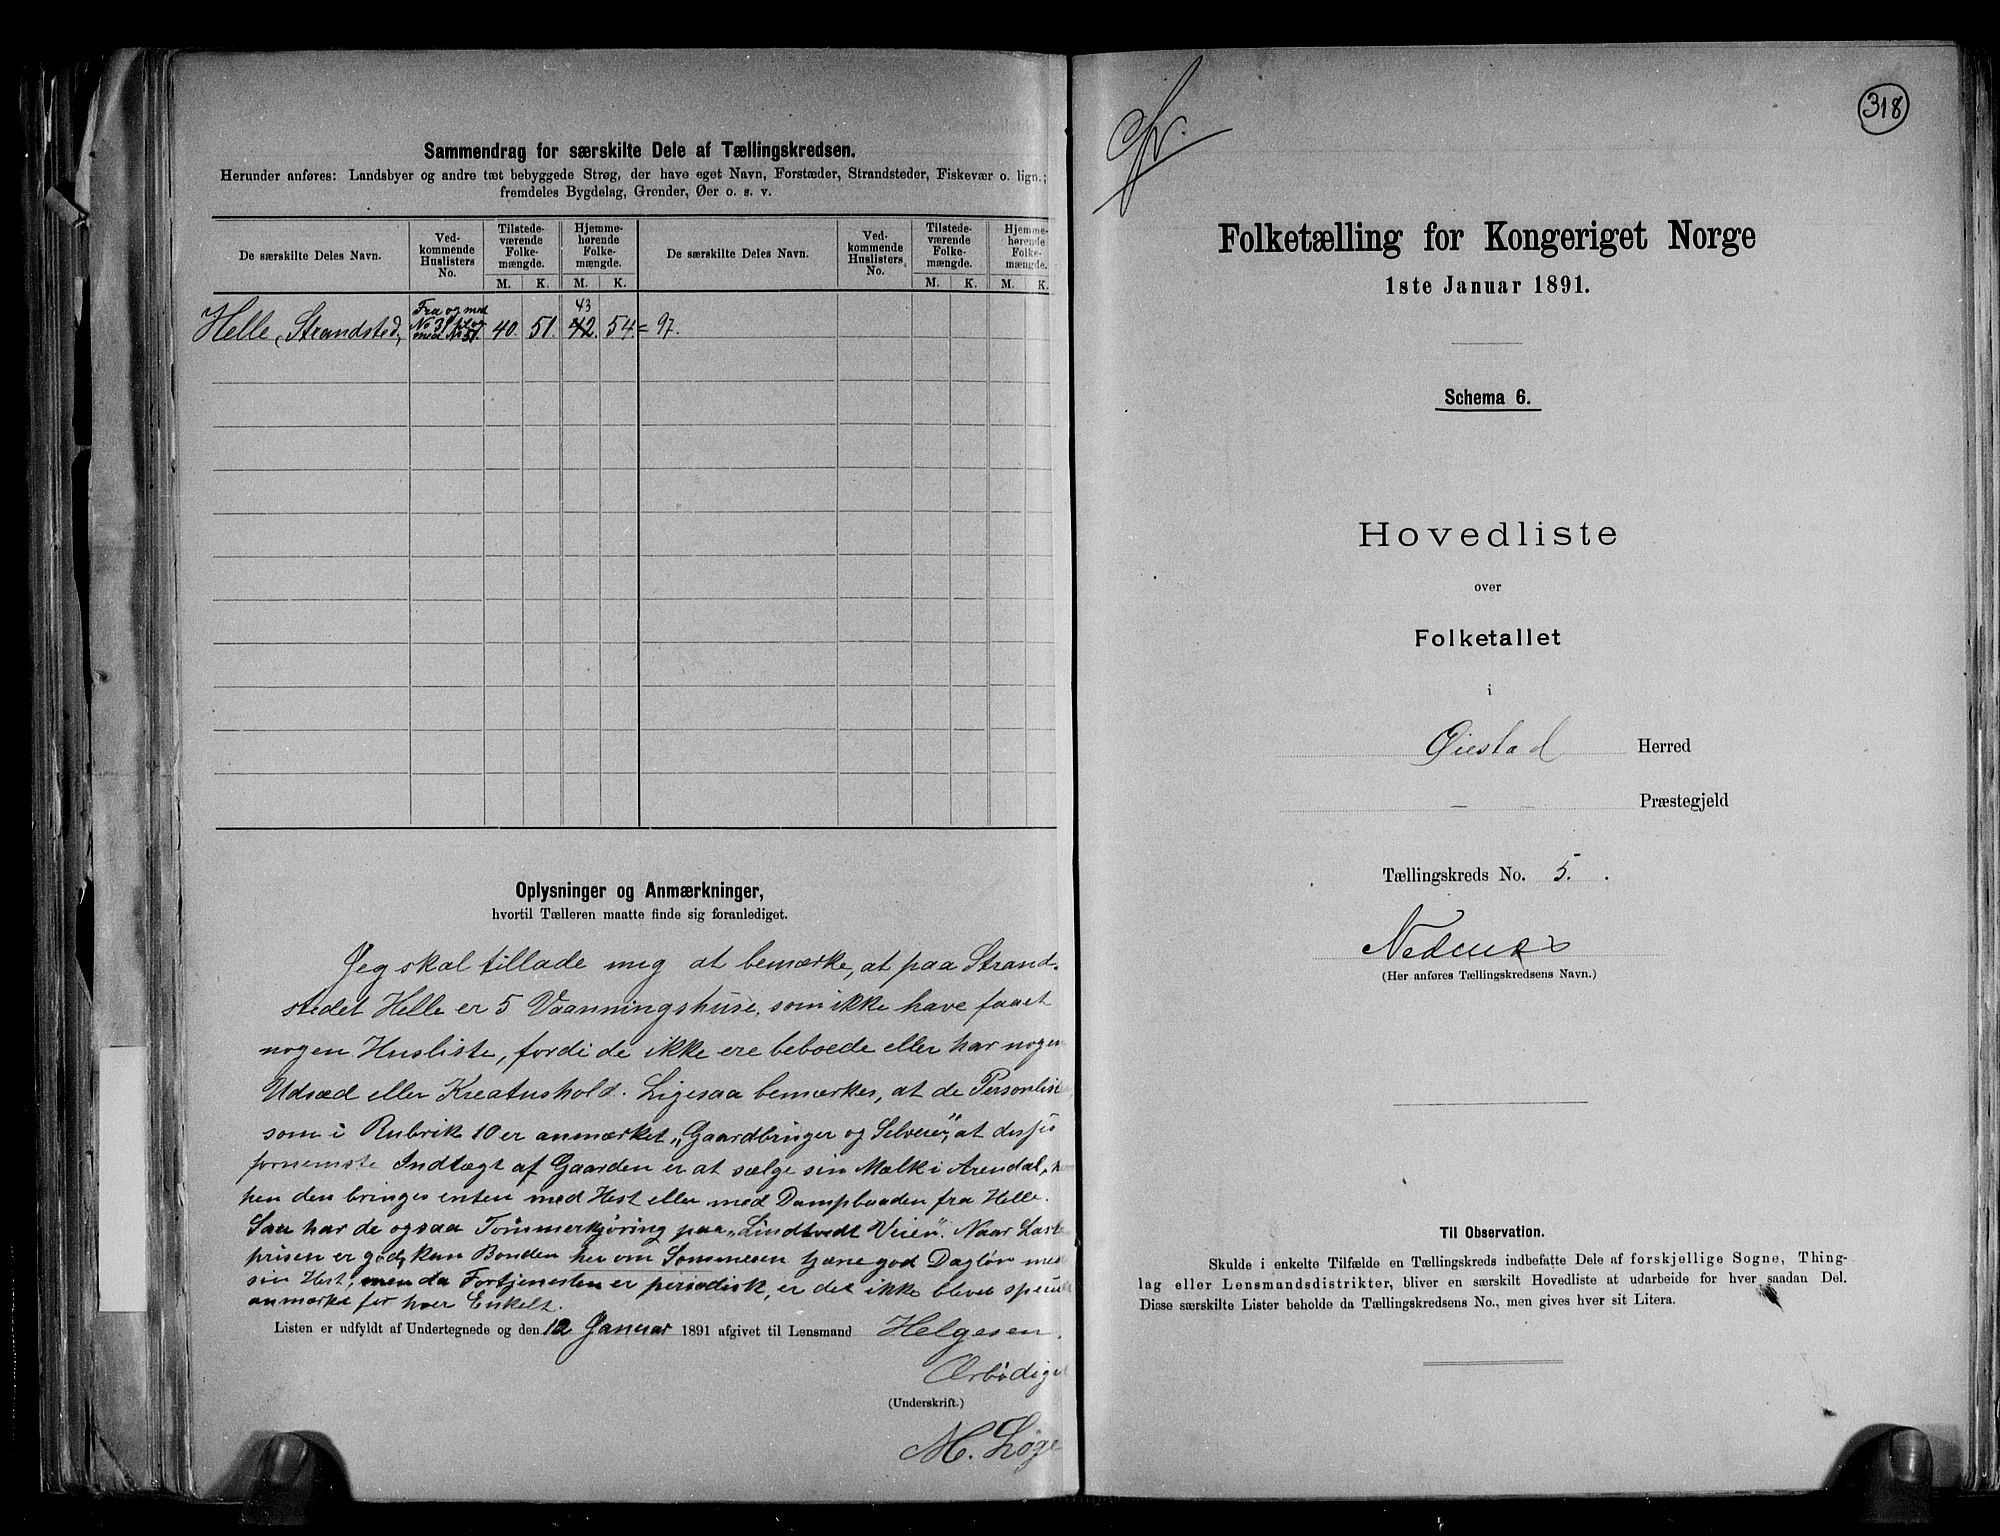 Sammendrag for særskilte Dele af Tællingskredsen.
Herunder anføres: Landsbyer og andre tæt bebyggede Strøg, der have eget Navn, Forstæder, Strandsteder, Fiskevær o. lign.;
fremdeles Bygdelag, Grender, Øer o. s. v.
De særskilte Deles Navn.
Ved-
kommende
Huslisters
No.
Tilstede-
værende
Folke-
mængde.
Hjemme-
hørende
Folke-
mængde.
De særskilte Deles Navn.
Ved-
kommende
Huslisters
No.
Tilstede-
værende
Folke-
mængde.
Hjemme-
hørende
Folke-
mængde.
M. K. M. K. M. K. M. K.
Helle, Strandsted, Fra og med 43
No 31 til og 40. 51. 42. 54 = 97.
med No 51.
Oplysninger og Anmærkninger,
hvortil Tælleren maatte finde sig foranlediget.
Jeg skal tillade mig at bemærke, at paa Strand-
stedet Helle er 5 Vaaningshuse, som ikke have faaet
nogen Husliste, fordi de ikke ere beboede eller har nogen
Udsæd eller Kreaturhold. Ligesaa bemærkes, at de Personlist
som i Rubrik 10 er anmærket „Gaardbruger og Selveier", at disses
fornemste Indtægt af Gaarden er at sælge sin Mælk i Arendal,
hen den bringes enten med Hest eller med Dampbaaden fra Helle.
Saa har de ogsaa Tømmerkjøring paa „Lindtvedt Veien". Naar Last
prisen er god, kan Bonden her om Sommeren tjene god Dagløn med
sin Hest, men da Fortjenesten er periodisk, er det ikke blevet
anmærket for hver Enkelt.
Listen er udfyldt af Undertegnede og den 12 Januar 1891 afgivet til Lensmand Helgesen.
Ærbødigst
(Underskrift.)
M. Løge
318
Folketælling for Kongeriget Norge
1ste Januar 1891.
Schema 6.
Hovedliste
over
Folketallet
i
Øiestad Herred
— — Præstegjeld
Tællingskreds No. 5.
Nedenes
(Her anføres Tællingskredsens Navn.)
Til Observation.
Skulde i enkelte Tilfælde en Tællingskreds indbefatte Dele af forskjellige Sogne, Thing-
lag eller Lensmandsdistrikter, bliver en særskilt Hovedliste at udarbeide for hver saadan Del.
Disse særskilte Lister beholde da Tællingskredsens No., men gives hver sit Litera.